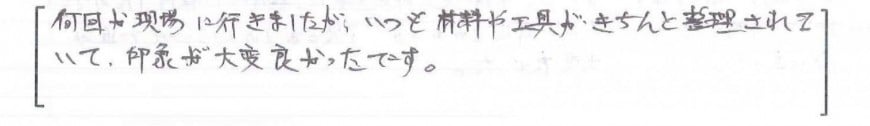 何回か現場に行きましたが、いつも材料や工具がきちんと整理されて
いて、印象が大変良かったです。